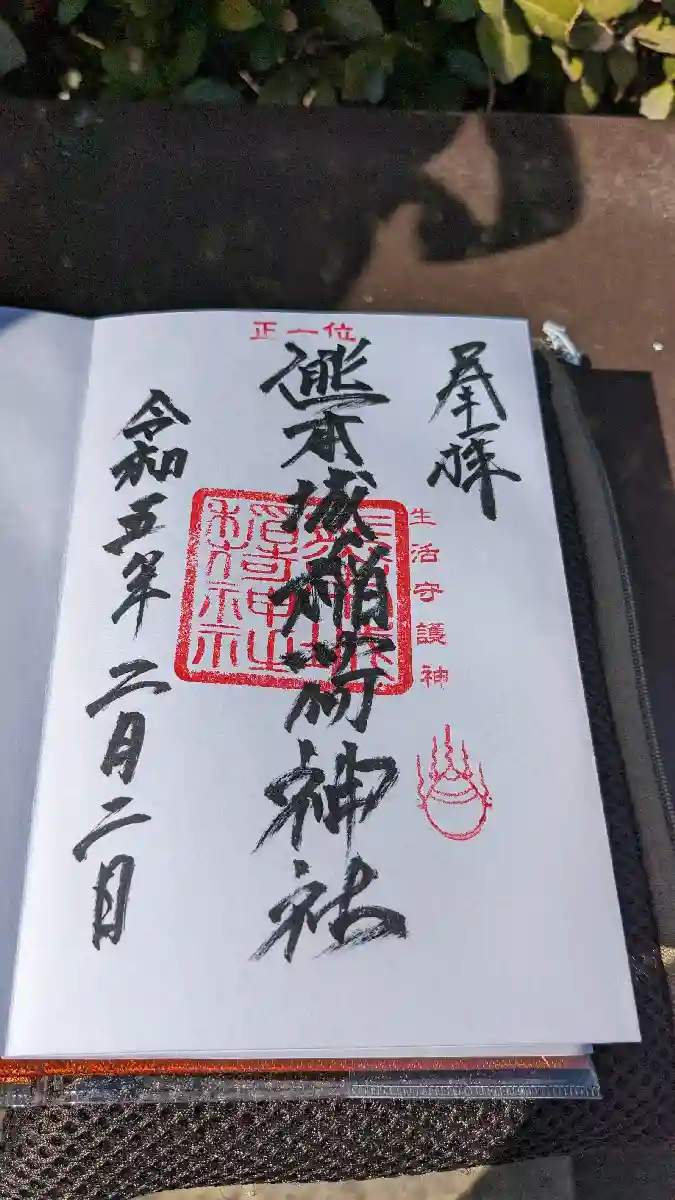 正一位
奉拝
生活守護神
熊本城稲荷神社
令和五年二月二日